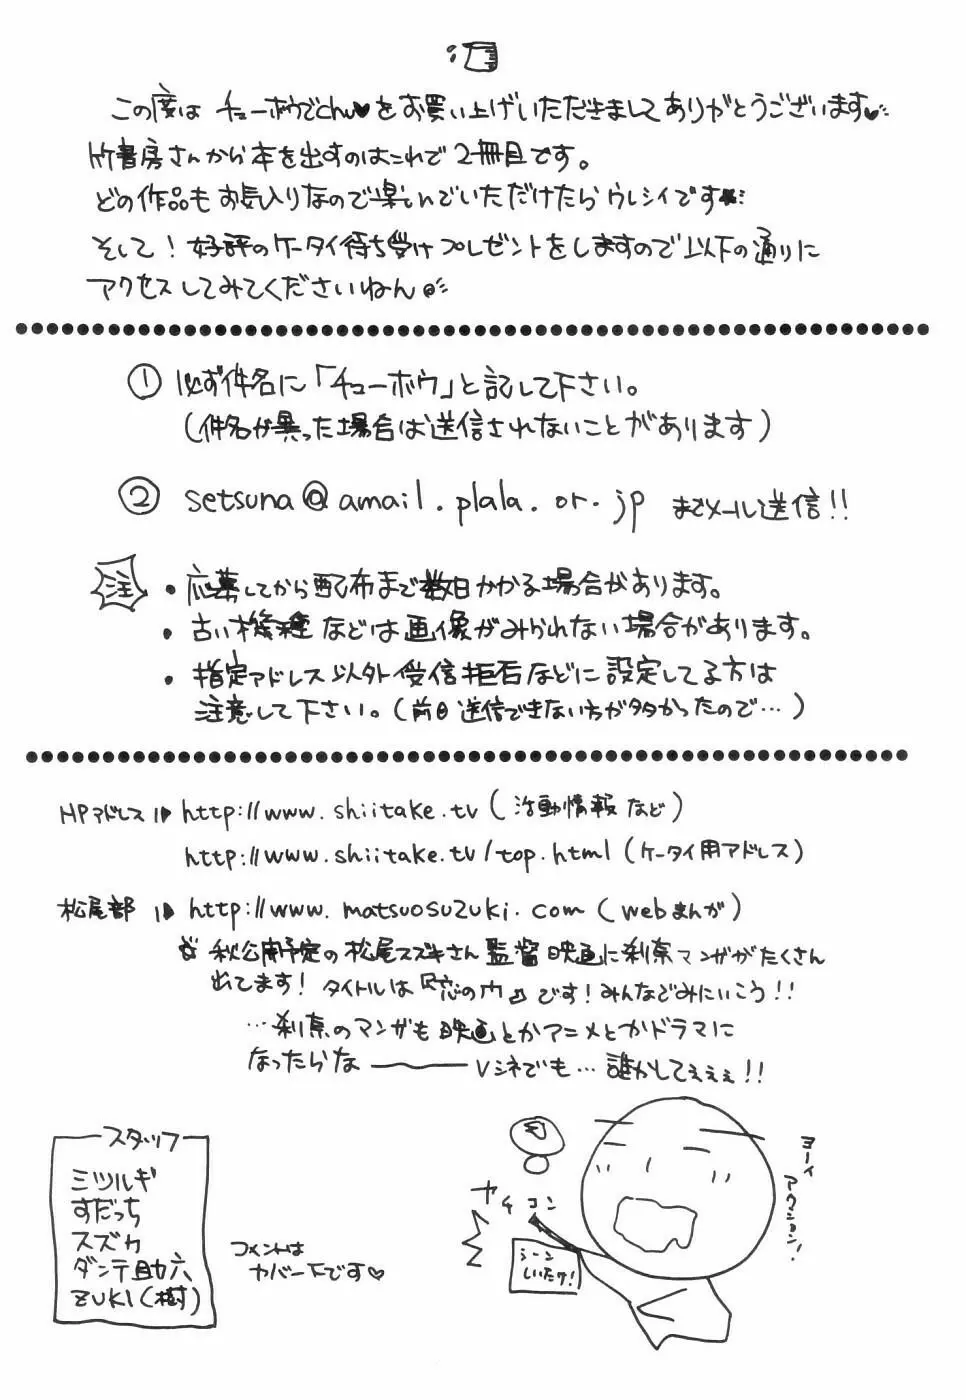 この度は チューボウでChu♥をお買い上げいただきましてありがとうございます♥
竹書房さんから本を出すのはこれで2冊目です。
どの作品もお気入りなので楽しんでいただけたらウレシイです★
そして！好評のケータイ待ち受けプレゼントをしますので以下の通りに
アクセスしてみてくださいねん
① 必ず件名に「チューボウ」と記して下さい。
(件名が異った場合は送信されないことがあります)
② setsuna@amail.plala.or.jp までメール送信!!
注
・応募してから配布まで数日かかる場合があります。
・古い機種などは画像がみられない場合があります。
・指定アドレス以外受信拒否などに設定してる方は
注意して下さい。(前回送信できない方が多かったので…)
HPアドレス http://www.shiitake.tv (活動情報など)
http://www.shiitake.tv/top.html (ケータイ用アドレス)
松尾部 http://www.matsuosuzuki.com (webまんが)
秋公開予定の松尾スズキさん監督映画に刹奈マンガがたくさん
出てます！タイトルは『恋の門』です！みんなでみにいこう!!
…刹奈のマンガも映画とかアニメとかドラマに
なったらな―― Vシネでも…誰かしてぇぇぇ!!
スタッフ
ミツルギ
すだっち
スズカ
ダンテ助六
ZUKI(樹)
コメントは
カバー下です♡
カチコン
シーン
しいたけ!
ヨーイ
アクション!